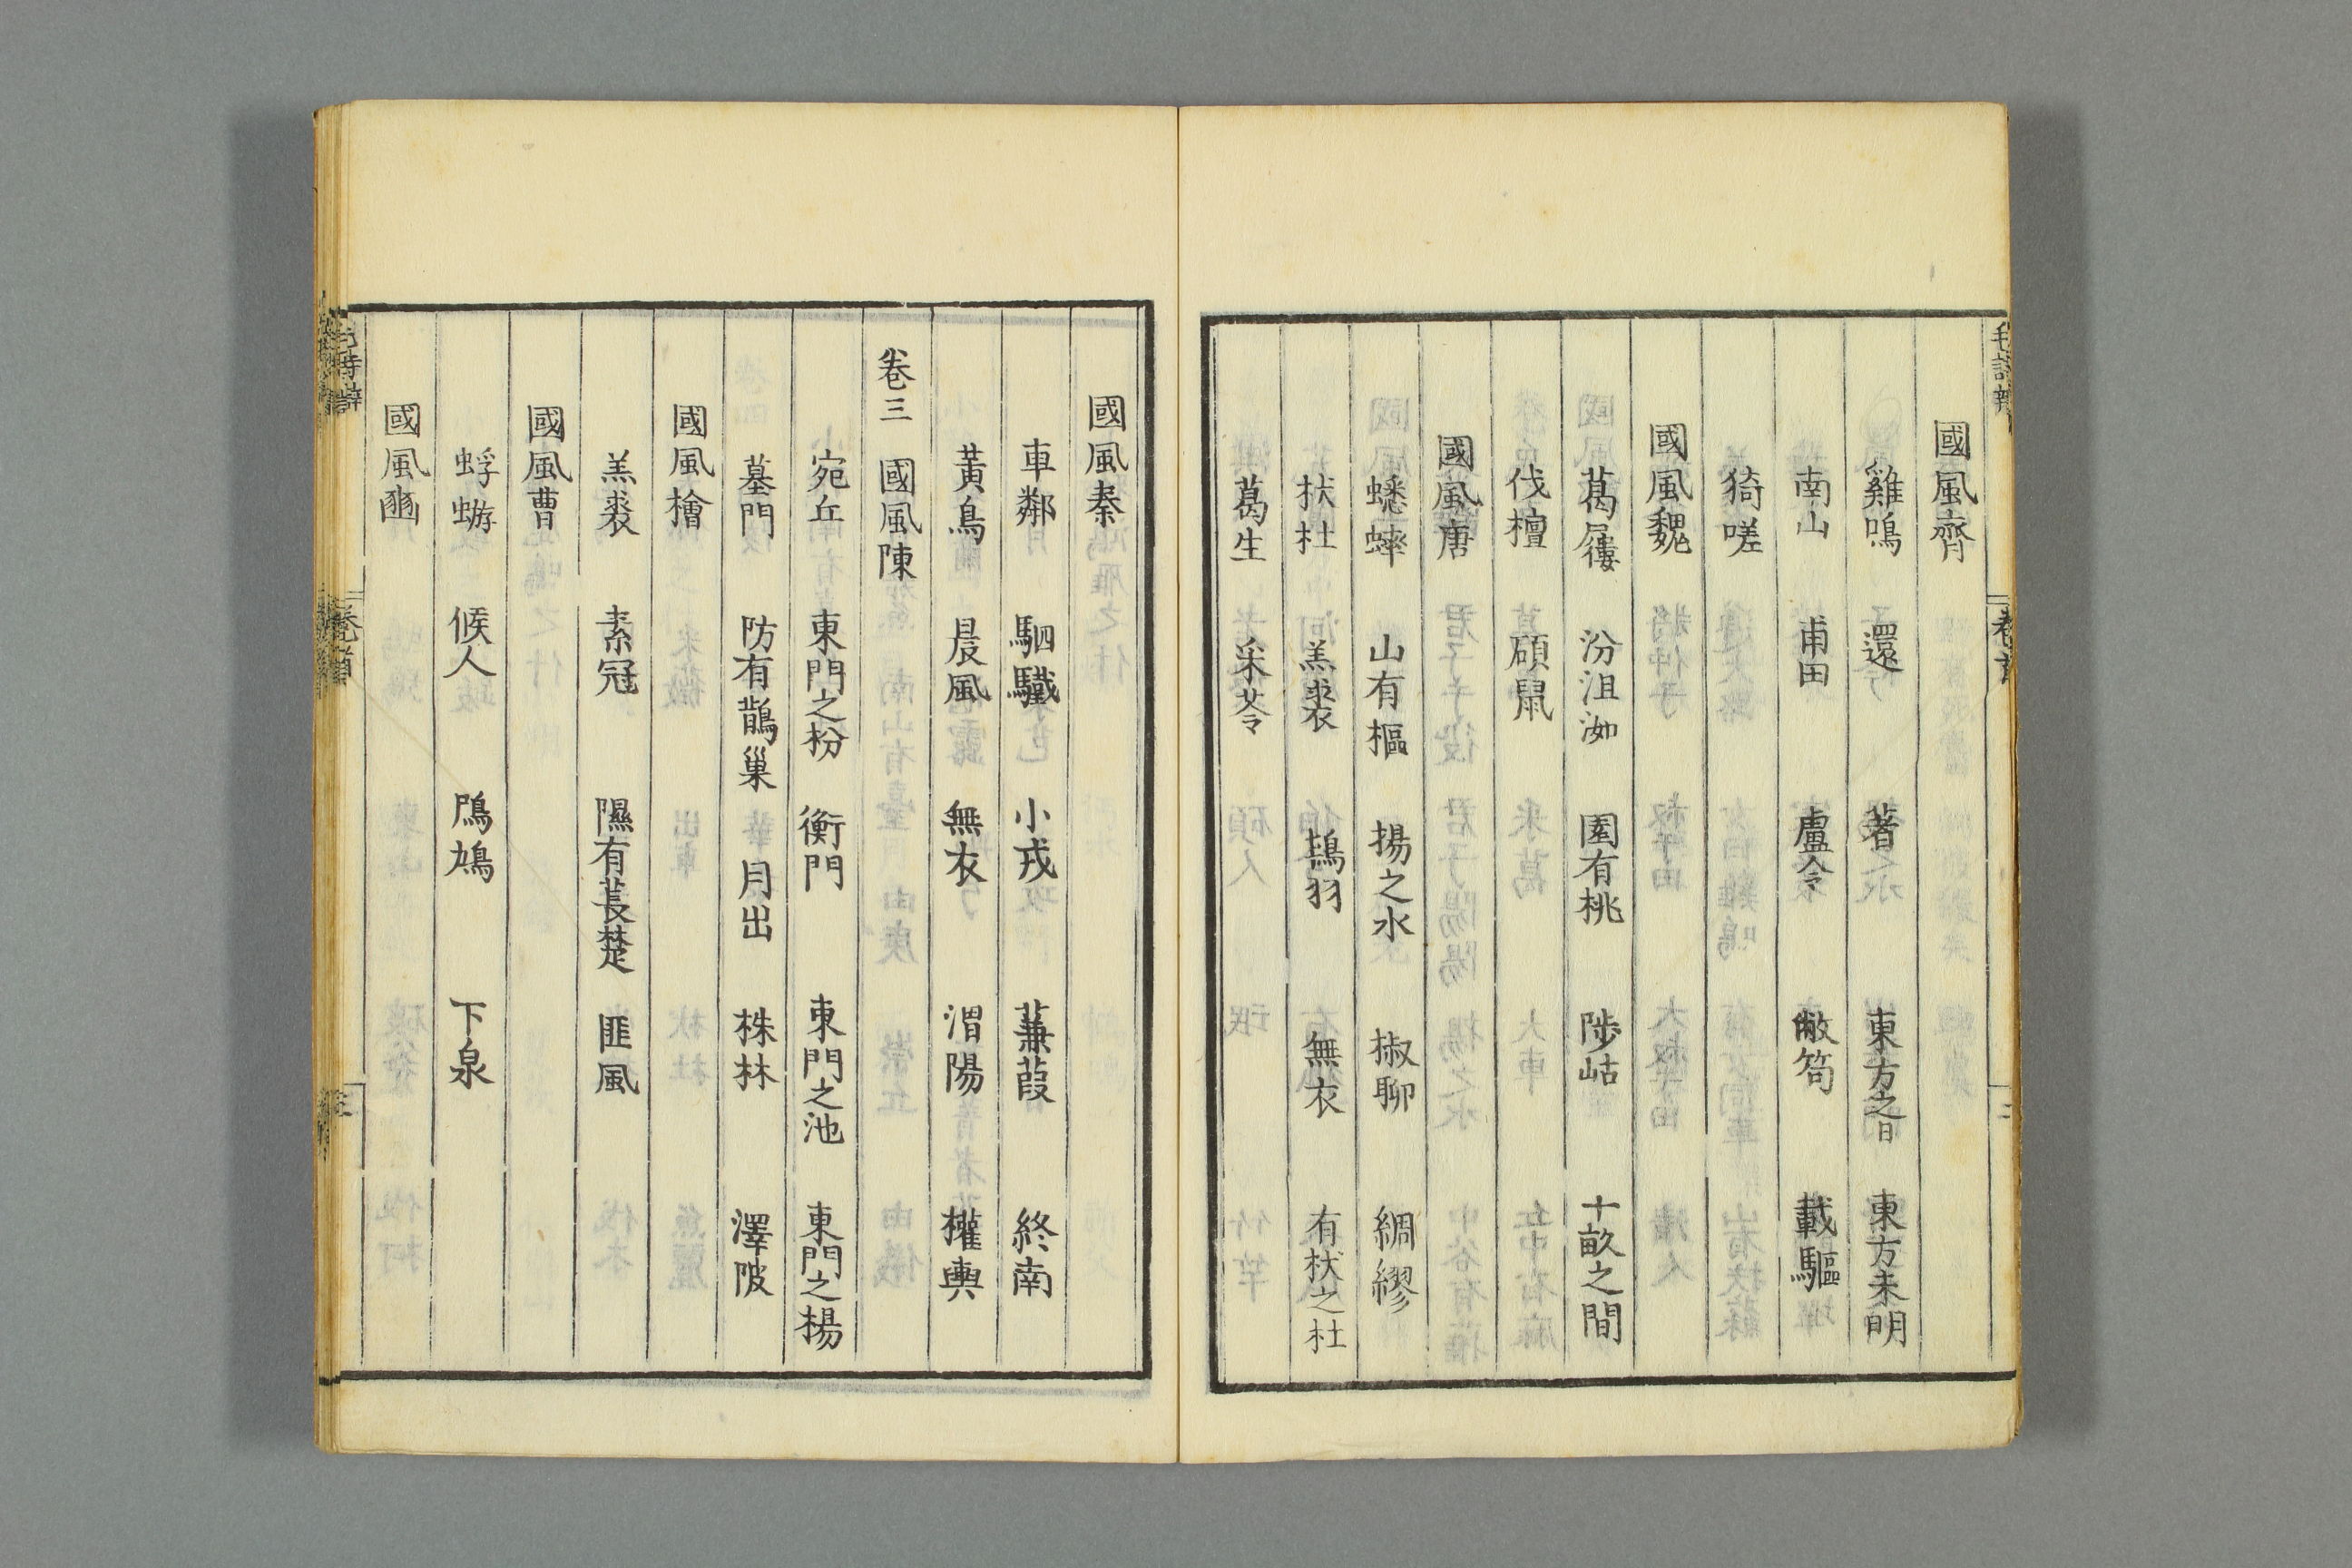 國風齊
雞鳴 還 著 東方之日 東方未明
南山 甫田 盧令 敝笱 載驅
猗嗟
國風魏
葛屨 汾沮洳 園有桃 陟岵 十畝之間
伐檀 碩鼠
國風唐
蟋蟀 山有樞 揚之水 椒聊 綢繆
杕杜 羔裘 鴇羽 無衣 有杕之杜
葛生 采苓
國風秦
車鄰 駟驖 小戎 蒹葭 終南
黃鳥 晨風 無衣 渭陽 權輿
卷三 國風陳
宛丘 東門之枌 衡門 東門之池 東門之楊
墓門 防有鵲巢 月出 株林 澤陂
國風檜
羔裘 素冠 隰有萇楚 匪風
國風曹
蜉蝣 候人 鳲鳩 下泉
國風豳